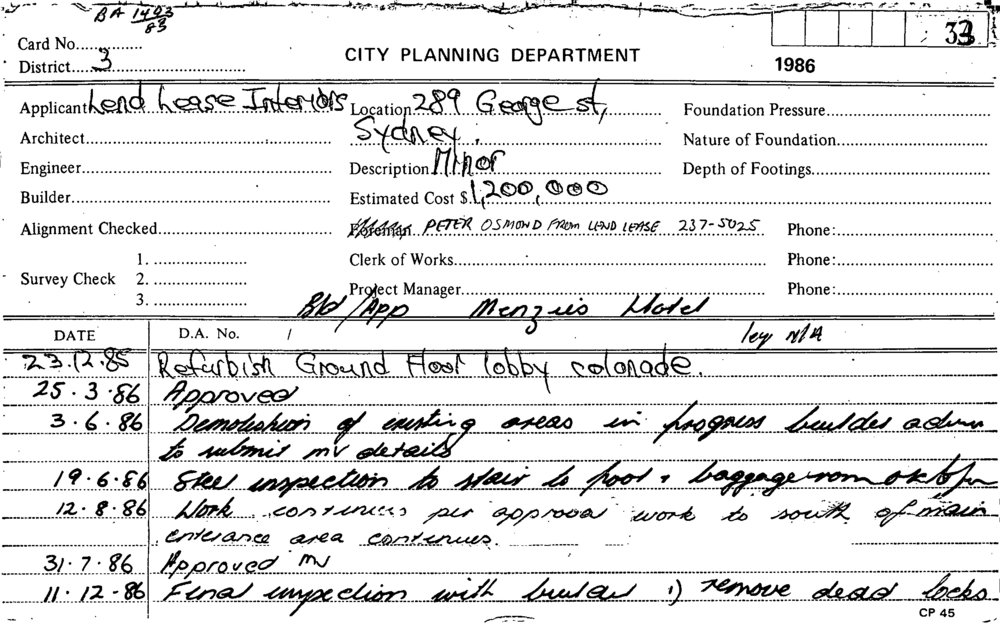 BA 1403/83
33
Card No.
District 3
CITY PLANNING DEPARTMENT
1986
Applicant Lend Lease Interiors Location 289 George st, Foundation Pressure
Architect Sydney. Nature of Foundation
Engineer Description Minor Depth of Footings
Builder Estimated Cost $ 1,200,000
Alignment Checked Foreman PETER OSMOND FROM LEND LEASE 237-5025 Phone:
1. Clerk of Works Phone:
Survey Check 2.
Project Manager Phone:
3.
Bld/App Menzies Hotel
DATE D.A. No. / ley N/A
23.12.85 Refurbish Ground Floor lobby colonade.
25.3.86 Approved
3.6.86 Demolishion of existing areas in progress builder
to submit mv details
19.6.86 Steel inspection to stair to pool + baggage room ok
12.8.86 Work continues per approval work to south of main
enterance area continues.
31.7.86 Approved mv
11.12.86 Final inspection with builder 1) remove dead locks
CP 45